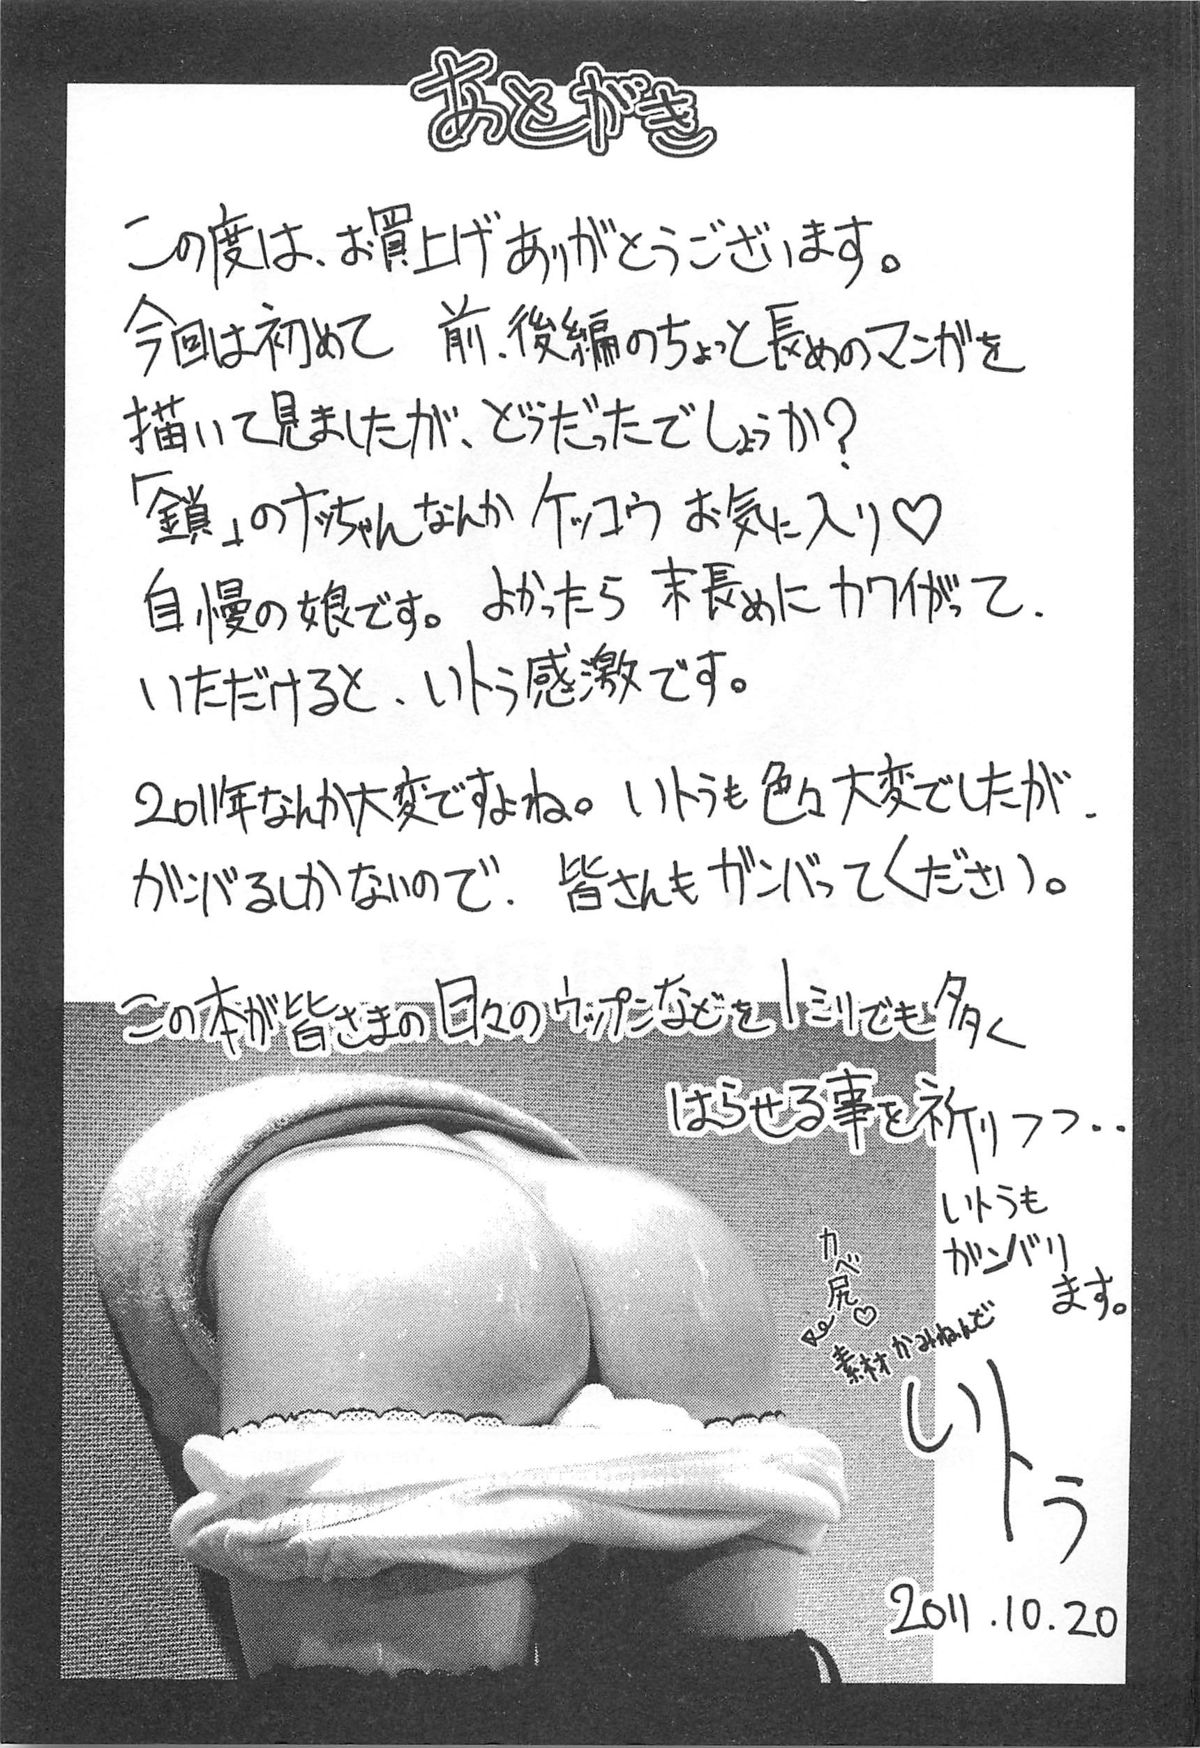 あとがき
この度は、お買上げありがとうございます。
今回は初めて 前、後編のちょっと長めのマンガを
描いて見ましたが、どうだったでしょうか?
「鎖」のナッちゃんなんかケッコウ お気に入り♡
自慢の娘です。よかったら 末長めにカワイがって、
いただけると、いトう感激です。
2011年なんか大変ですよね。いトうも色々大変でしたが、
ガンバるしかないので、皆さんもガンバってください。
この本が皆さまの日々のウップンなどを1ミリでも多く
はらせる事を祈りつつ・・
いトうも
ガンバリ
ます。
カベ尻♡
素材かみねんど
いトう
2011.10.20